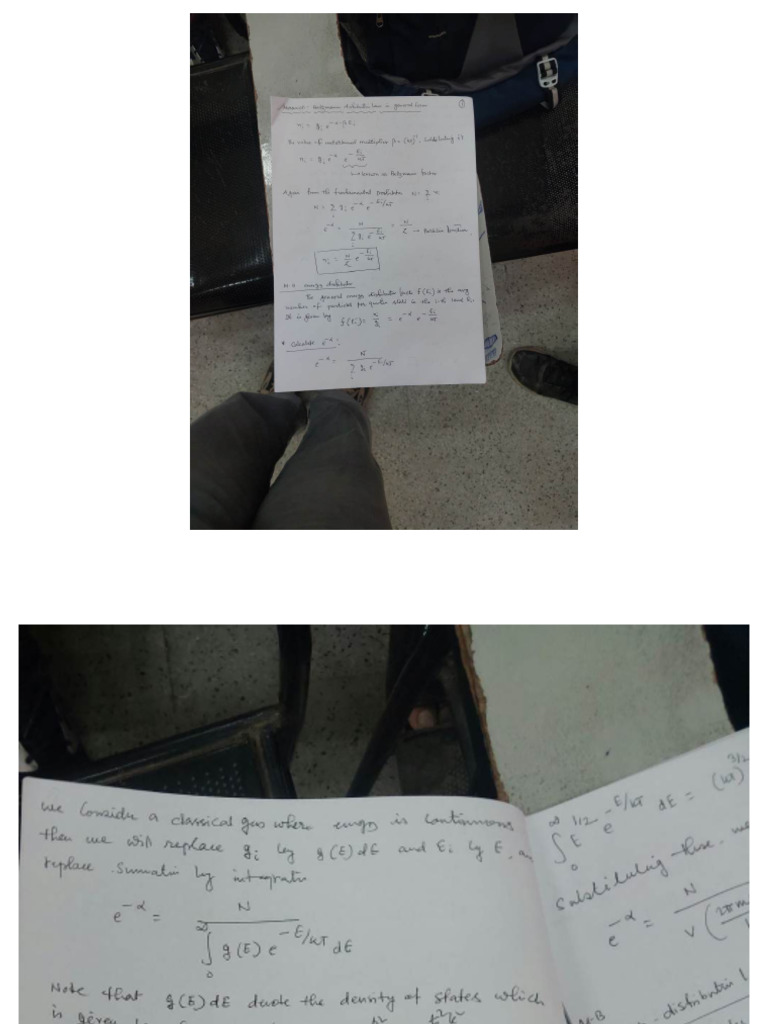 Maxwell - Boltzmann distribution law in general form
①
nᵢ = gᵢ e^{-α-βEᵢ}
The value of undetermined multiplier β = (kT)⁻¹, substituting it
nᵢ = gᵢ e^{-α} e^{-Eᵢ/kT}
↳ known as Boltzmann factor
Again from the fundamental postulate N = Σᵢ nᵢ
N = Σᵢ gᵢ e^{-α} e^{-Eᵢ/kT}
e^{-α} = N / Σᵢ gᵢ e^{-Eᵢ/kT} = N/Z → Partition function.
nᵢ = N/Z e^{-Eᵢ/kT}
M-B energy distribution
The general energy distribution func f(Eᵢ) is the avg
number of particles per quantum state in the i-th level Eᵢ.
It is given by f(Eᵢ) = nᵢ/gᵢ = e^{-α} e^{-Eᵢ/kT}
* Calculate e^{-α} :
e^{-α} = N / Σᵢ gᵢ e^{-Eᵢ/kT}
We consider a classical gas where energy is continuous
then we will replace gᵢ by g(E)dE and Eᵢ by E, an
replace summation by integration
e^{-α} = N / ∫₀^∞ g(E) e^{-E/kT} dE
Note that g(E)dE denote the density of states which
is given by
∫₀^∞ E^{1/2} e^{-E/kT} dE = (kT)^{3/2}
Substituting these, we
e^{-α} = N / V (2πm
M-B distribution